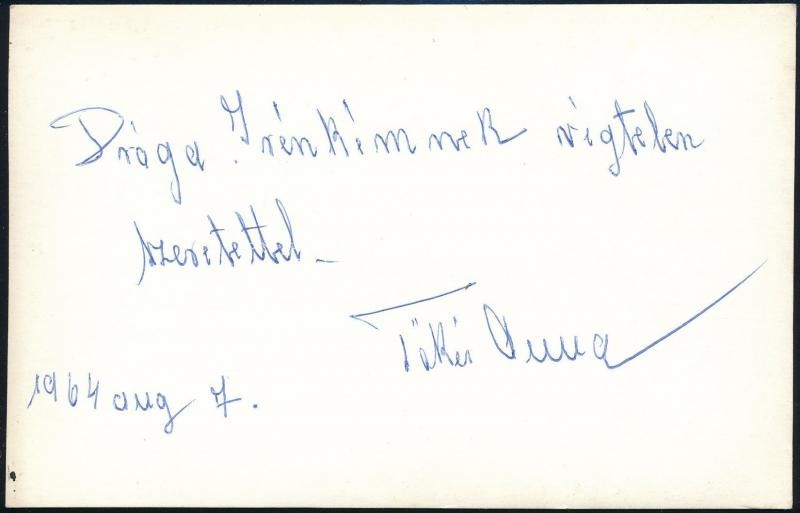 Drága Irénkémnek végtelen
szeretettel_
Tőkés Anna
1964 aug 7.